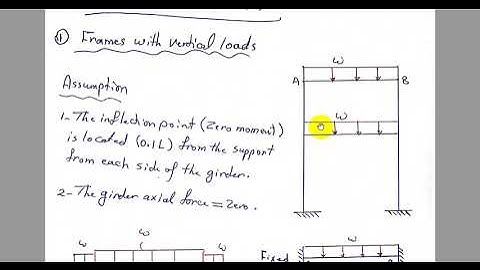 ① Frames with vertical loads
Assumption
1- The inflection point (Zero moment)
is located (0.1L) from the support
from each side of the girder.
2- The girder axial force = Zero.
w
A
B
w
w
w
w
w
Fixed